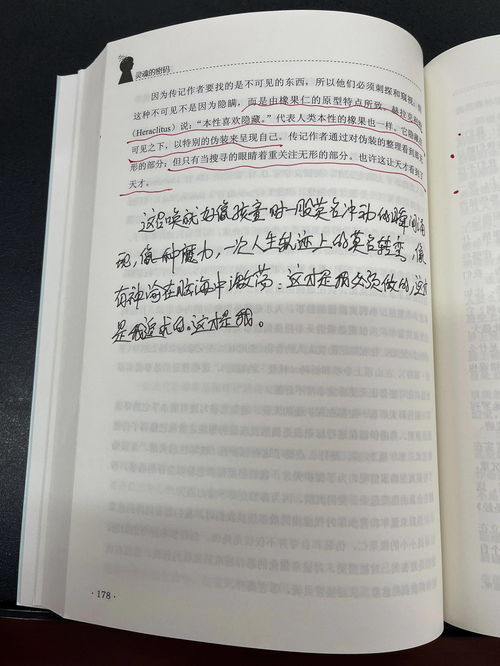 灵魂的密码
因为传记作者要找的是不可见的东西，所以他们必须刺探和窥视，而
这种不可见不是因为隐瞒，而是由橡果仁的原型特点所致。赫拉克利特
(Heraclitus) 说：“本性喜欢隐藏。”代表人类本性的橡果也一样。它隐藏在
可见之下，以特别的伪装来呈现自己。传记作者通过对伪装的整理看到那无
形的部分；但只有当搜寻的眼睛着重关注无形的部分。也许这让天才看到了
天才。
这召唤就好像孩童时一股莫名冲动的瞬间涌
现，像一种魔力，一次人生轨迹上的莫名转弯，像
有神谕在脑海中激荡：这才是我必须做的，这才
是我追求的。这才是我。
· 178 ·